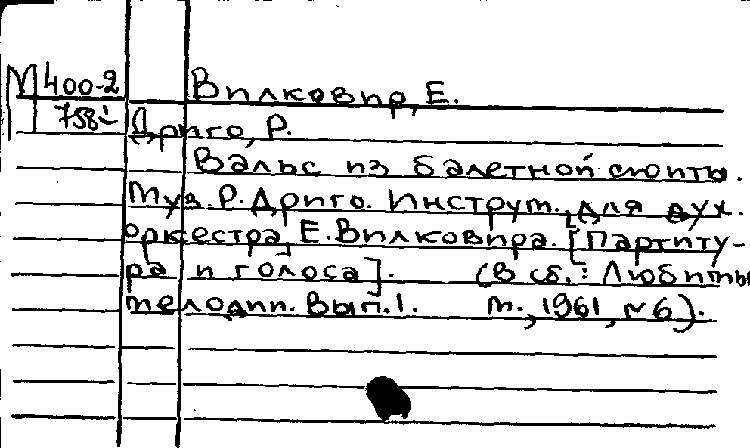 М 400-2 Вилковир, Е.
758 Дриго, Р.
Вальс из балетной сюиты.
Муз. Р. Дриго. Инструм. для дух.
оркестра, Е. Вилковира. [Партиту-
ра и голоса]. (В сб.: Любимые
мелодии. Вып. 1. М., 1961, №6).